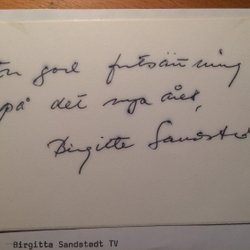 En god fortsättning
på det nya året,
Birgitte Sandst
Birgitta Sandstedt TV